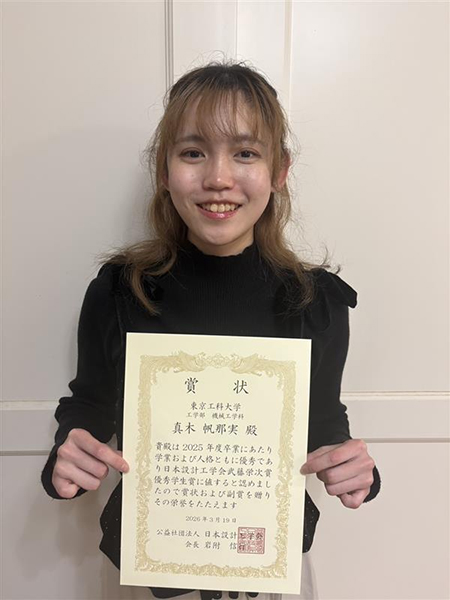 賞状
東京工科大学
工学部 機械工学科
真木 帆那実 殿
貴殿は2025年度卒業にあたり
学業および人格ともに優秀であ
り日本設計工学会武藤栄次賞
優秀学生賞に値すると認めまし
たので賞状および副賞を贈り
その栄誉をたたえます
2026年3月19日
公益社団法人 日本設計
会長 岩附 信